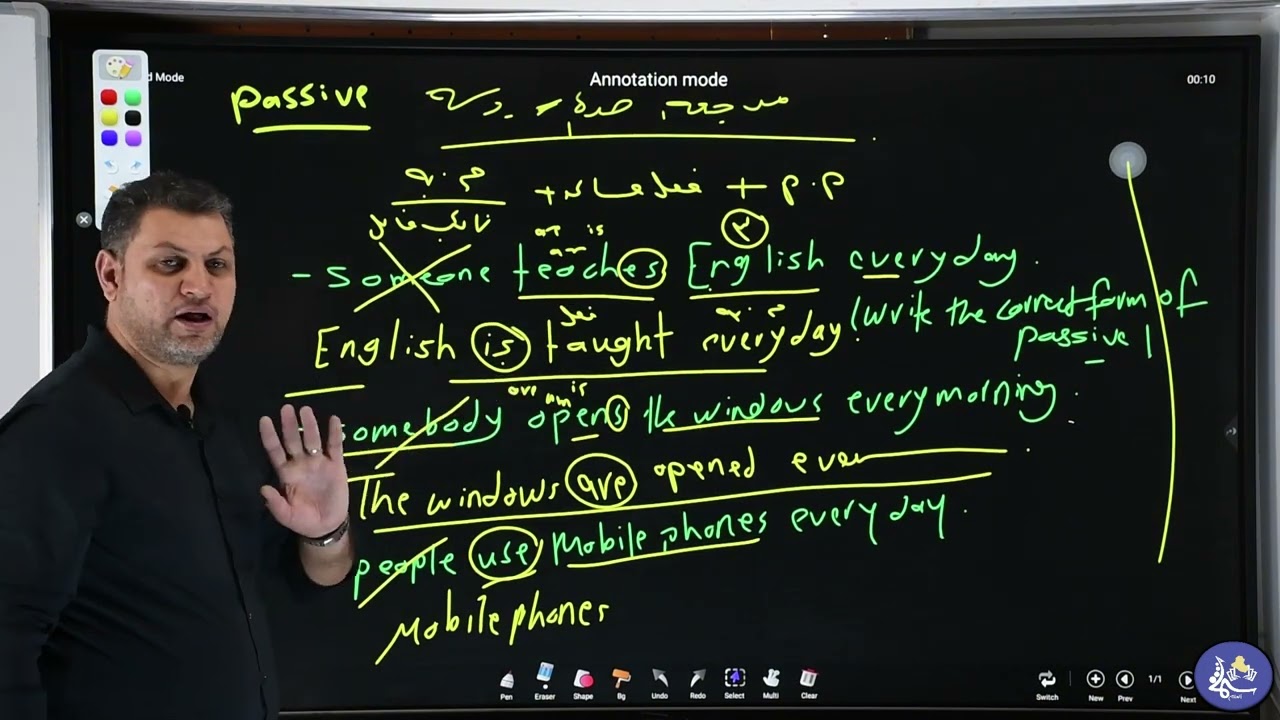 d Mode
Annotation mode
00:10
passive
م.به + فعل مساعد + p.p
نائب فاعل
are is
am
- Someone teaches English everyday.
فعل م.به
English is taught everyday. (Write the correct form of
passive)
are am is
- somebody opens the windows every morning.
The windows are opened ever
people use Mobile phones every day.
Mobile phones
Pen Eraser Shape Bg Undo Redo Select Multi Clear
Switch New Prev 1/1 Next